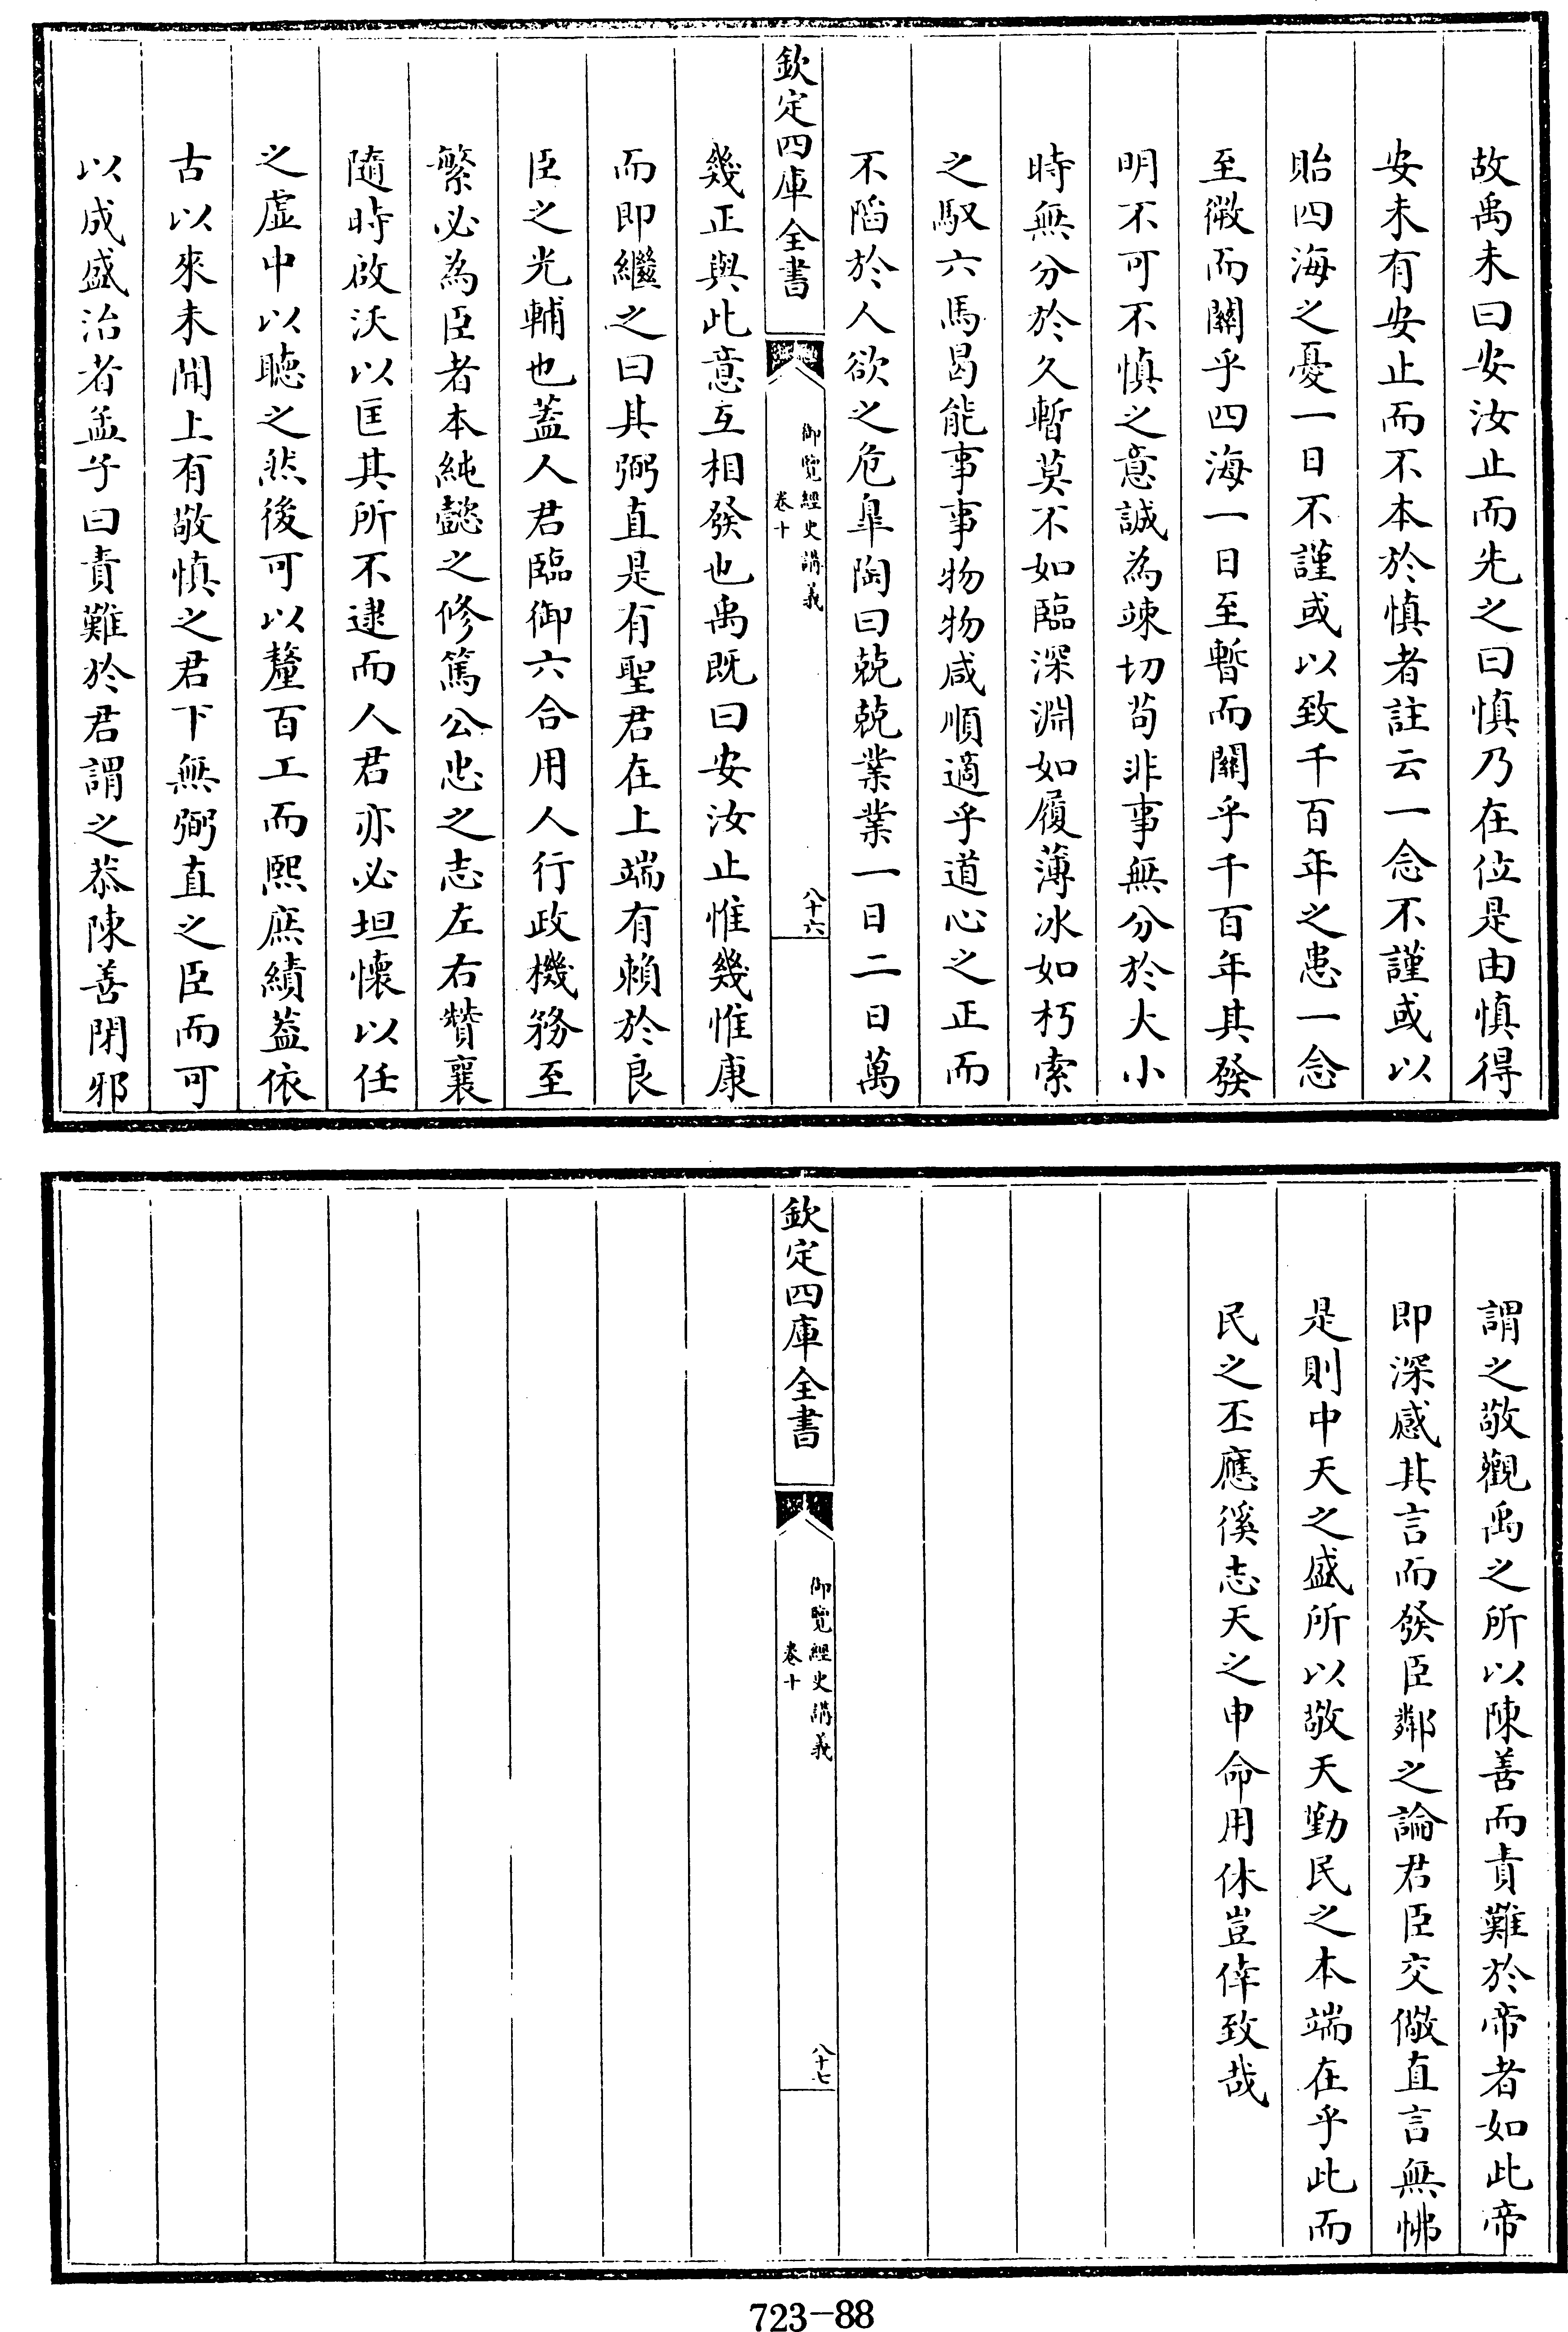 故禹未曰安汝止而先之曰慎乃在位是由慎得
安未有安止而不本於慎者註云一念不謹或以
貽四海之憂一日不謹或以致千百年之患一念
至微而關乎四海一日至暫而關乎千百年其發
明不可不慎之意誠為竦切苟非事無分於大小
時無分於久暫莫不如臨深淵如履薄冰如朽索
之馭六馬曷能事事物物咸順適乎道心之正而
不陷於人欲之危臯陶曰兢兢業業一日二日萬
欽定四庫全書
御覽經史講義
卷十
八十六
幾正與此意互相發也禹既曰安汝止惟幾惟康
而即繼之曰其弼直是有聖君在上端有賴於良
臣之光輔也蓋人君臨御六合用人行政機務至
繁必為臣者本純懿之修篤公忠之志左右贊襄
隨時啟沃以匡其所不逮而人君亦必坦懷以任
之虛中以聽之然後可以釐百工而熙庶績蓋依
古以來未聞上有敬慎之君下無弼直之臣而可
以成盛治者孟子曰責難於君謂之恭陳善閉邪
謂之敬觀禹之所以陳善而責難於帝者如此帝
即深感其言而發臣鄰之論君臣交儆直言無怫
是則中天之盛所以敬天勤民之本端在乎此而
民之丕應徯志天之申命用休豈倖致哉
欽定四庫全書
御覽經史講義
卷十
八十七
723-88